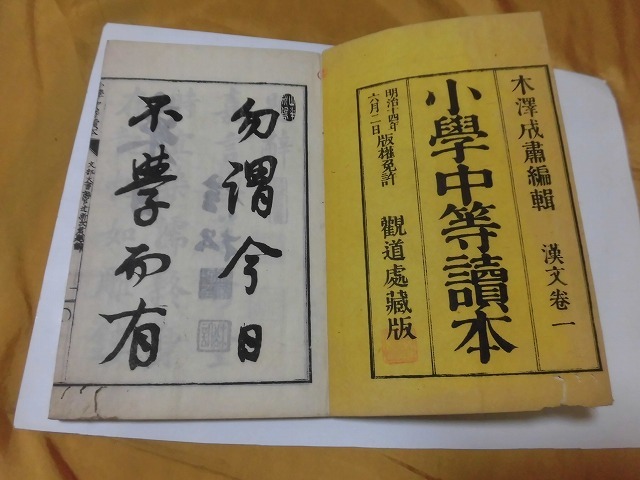 木澤成肅編輯
漢文卷一
小學中等讀本
明治十四年
六月二日
版權免許
觀道處藏版
勿謂今日
不學而有